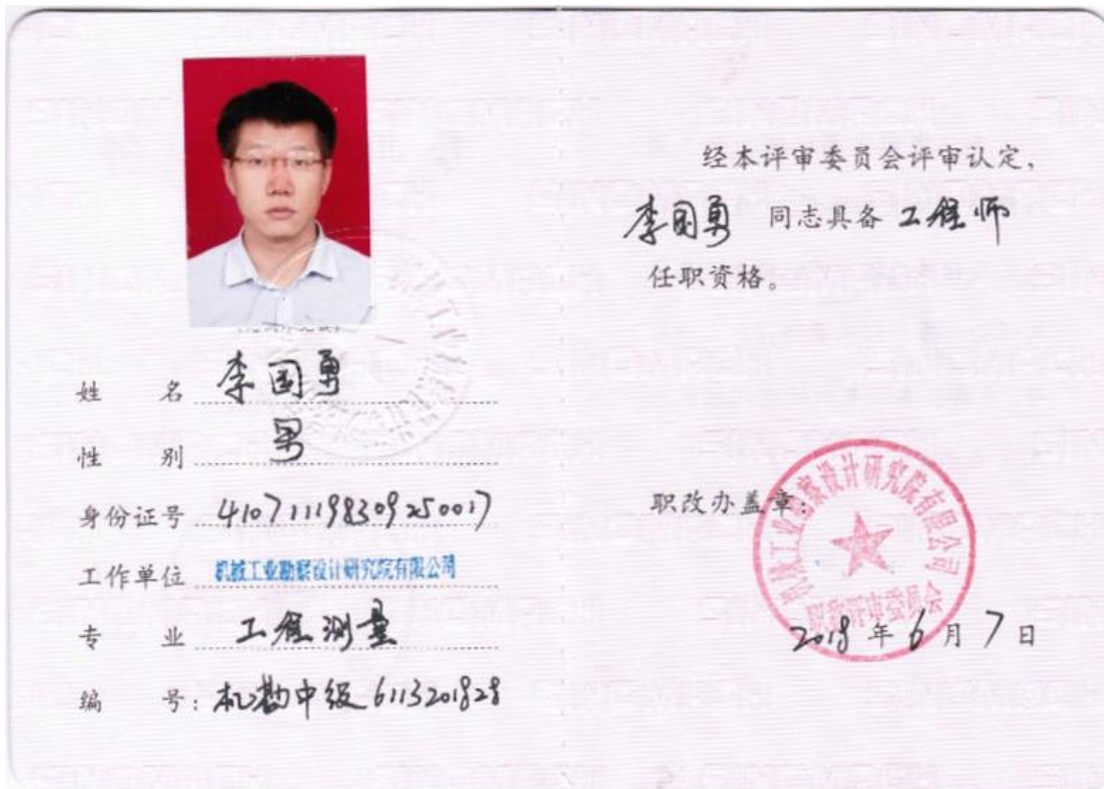 姓 名 李国勇
性 别 男
身份证号 410711198309250017
工作单位 机械工业勘察设计研究院有限公司
专 业 工程测量
编 号：机勘中级6113201828
经本评审委员会评审认定，
李国勇 同志具备 工程师
任职资格。
职改办盖章：
机械工业勘察设计研究院有限公司
职称评审委员会
2018 年 6 月 7 日